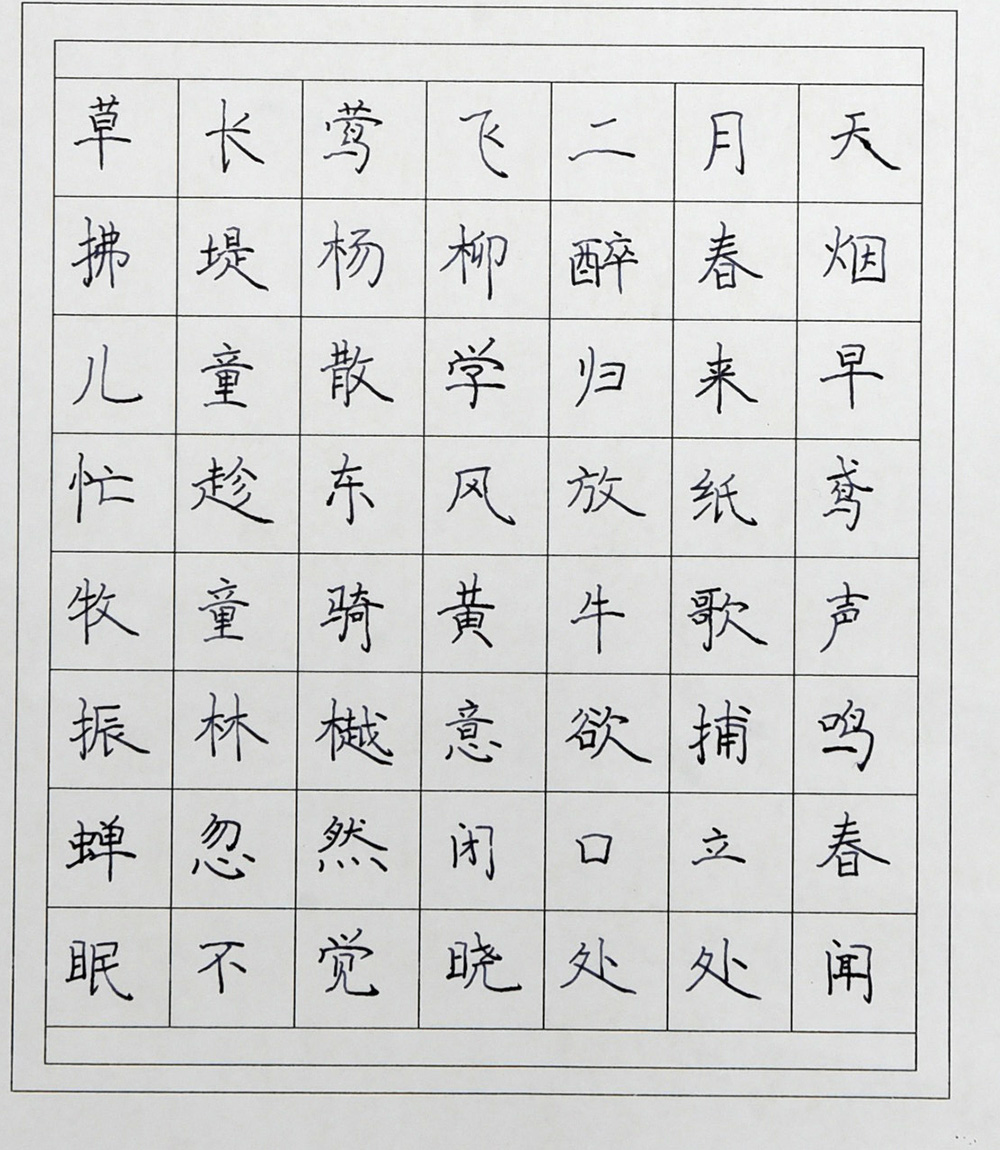 草长莺飞二月天
拂堤杨柳醉春烟
儿童散学归来早
忙趁东风放纸鸢
牧童骑黄牛歌声
振林樾意欲捕鸣
蝉忽然闭口立春
眠不觉晓处处闻